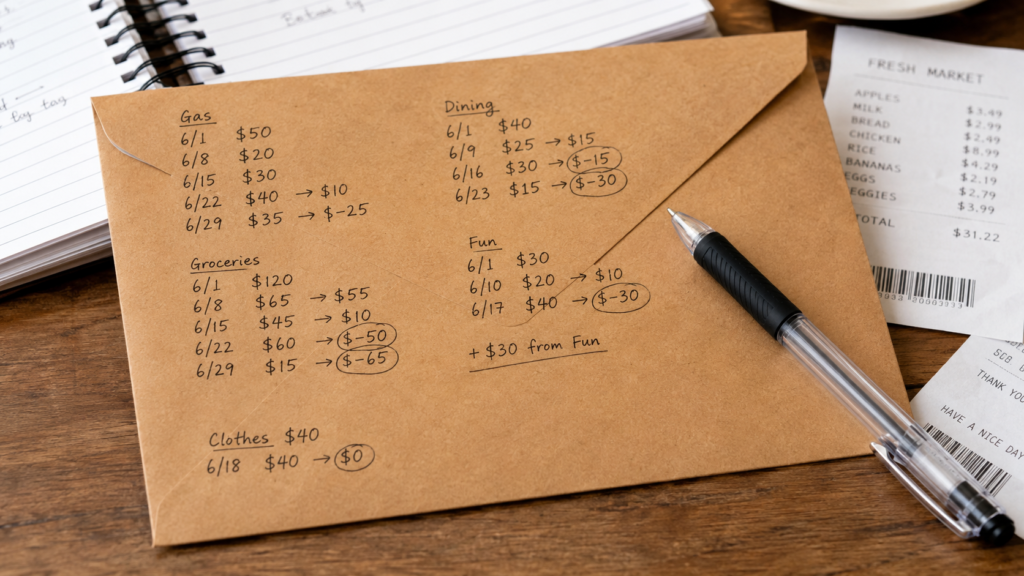 Gas
6/1 $50
6/8 $20
6/15 $30
6/22 $40 → $10
6/29 $35 → $-25
Groceries
6/1 $120
6/8 $65 → $55
6/15 $45 → $10
6/22 $60 → $-50
6/29 $15 → $-65
Clothes $40
6/18 $40 → $0
Dining
6/1 $40
6/9 $25 → $15
6/16 $30 → $-15
6/23 $15 → $-30
Fun
6/1 $30
6/10 $20 → $10
6/17 $40 → $-30
+ $30 from Fun
FRESH MARKET
APPLES $3.49
MILK $2.99
BREAD $2.49
CHICKEN $8.99
RICE $4.29
BANANAS $2.19
EGGS $2.79
EGGIES $3.99
TOTAL $31.22
THANK YOU
HAVE A NICE DAY